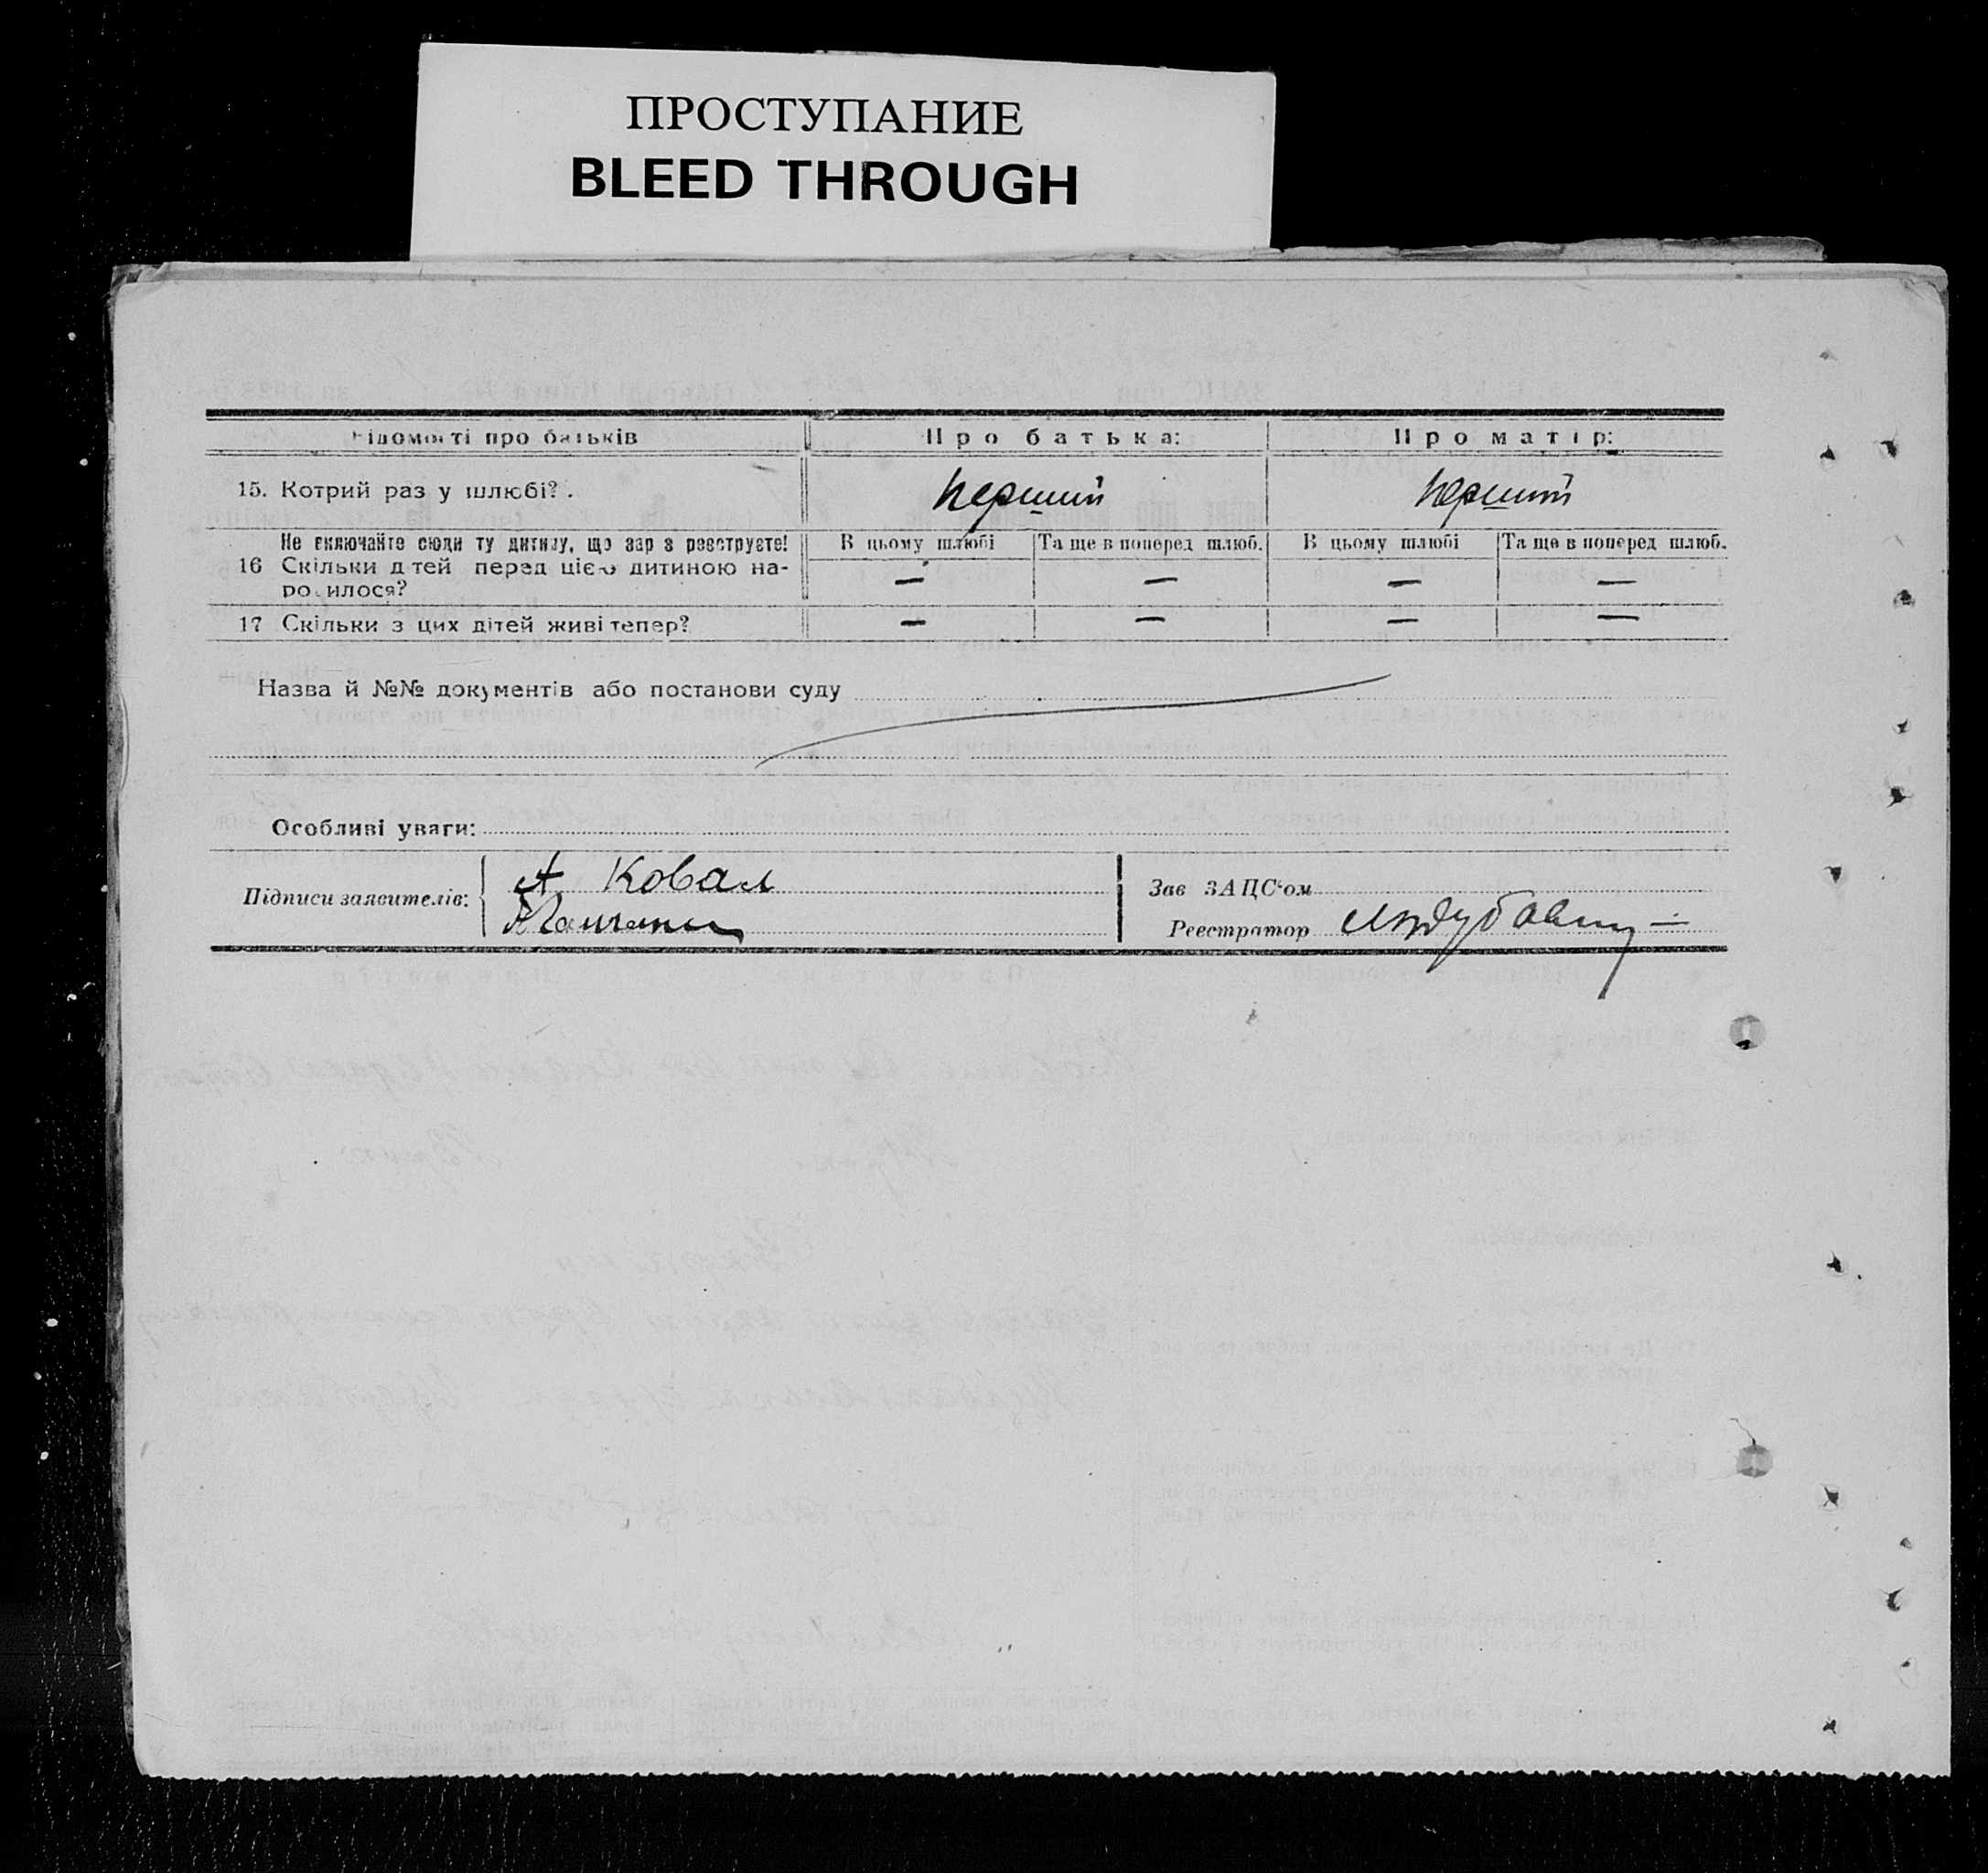 ПРОСТУПАНИЕ
BLEED THROUGH
Відомості про батьків Про батька: Про матір:
15. Котрий раз у шлюбі? . перший перший
Не включайте сюди ту дитину, що зараз реєструєте! В цьому шлюбі Та ще в поперед шлюб. В цьому шлюбі Та ще в поперед шлюб.
16 Скільки дітей перед цією дитиною на-
родилося? — — — —
17 Скільки з цих дітей живі тепер? — — — —
Назва й №№ документів або постанови суду
Особливі уваги:
Підписи заявителів: А. Ковал
Зав ЗАЦС'ом
Реєстратор